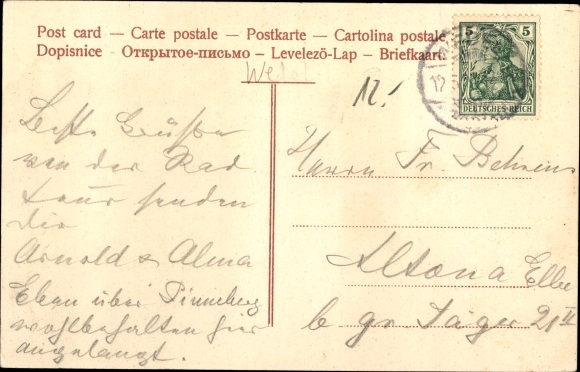 Post card — Carte postale — Postkarte — Cartolina postale
Dopisnice - Открытое-письмо – Levelező-Lap – Briefkaart
5 5
DEUTSCHES REICH
12
Wed
12.
Beste Grüße
von der Rad
tour senden
die
Arnold & Alma
Eben über Pinneberg
wohlbehalten hier
angelangt.
Herrn Fr. Behrens
Altona Elbe
b gr. Jäger 21 II